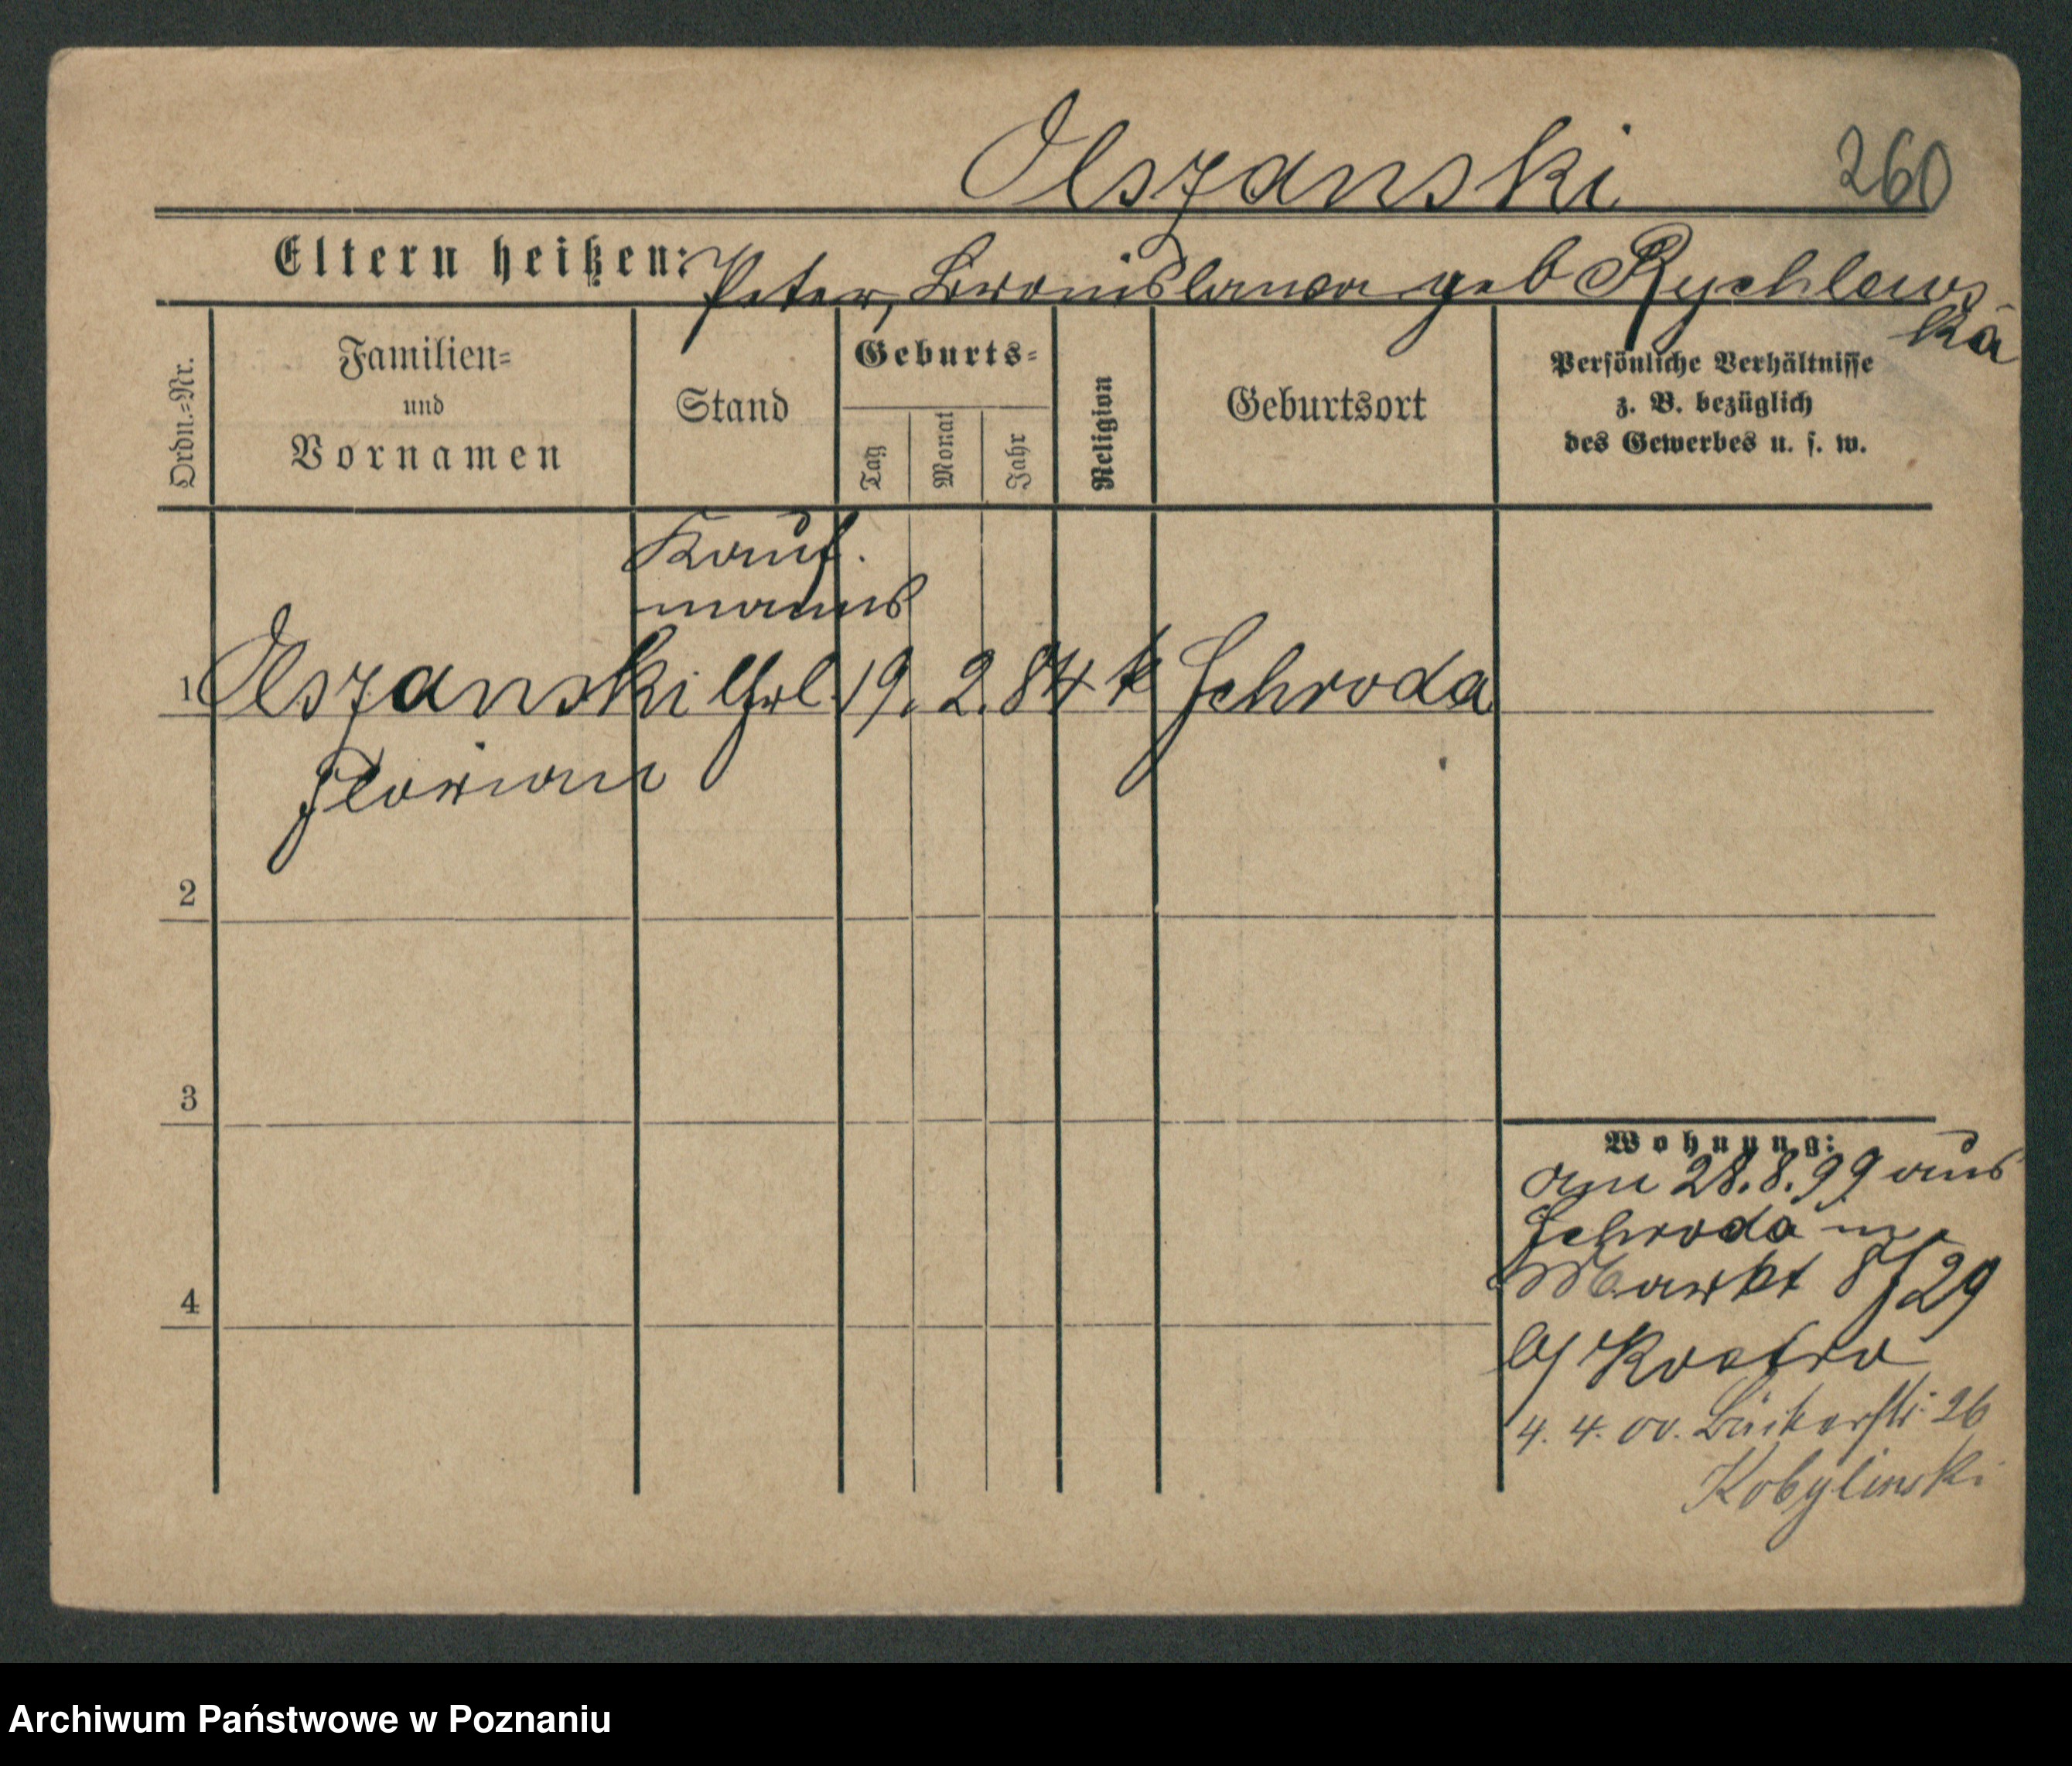 Olszanski 260
Eltern heißen: Peter, Bronislawa geb Rychlews-
ka
Ordn.=Nr.
Familien=
und
Vornamen
Stand
Geburts=
Tag
Monat
Jahr
Religion
Geburtsort
Persönliche Verhältnisse
z. B. bezüglich
des Gewerbes u. s. w.
Kauf.
manns
1 Olszanski Lhrl. 19. 2. 84 k Schroda
Florian
2
3
4
Wohnung:
am 28.8.99 aus
Schroda n.
Markt 8/29
b/
4. 4. 00. Bäckerstr. 26
Kobylinski
Archiwum Państwowe w Poznaniu